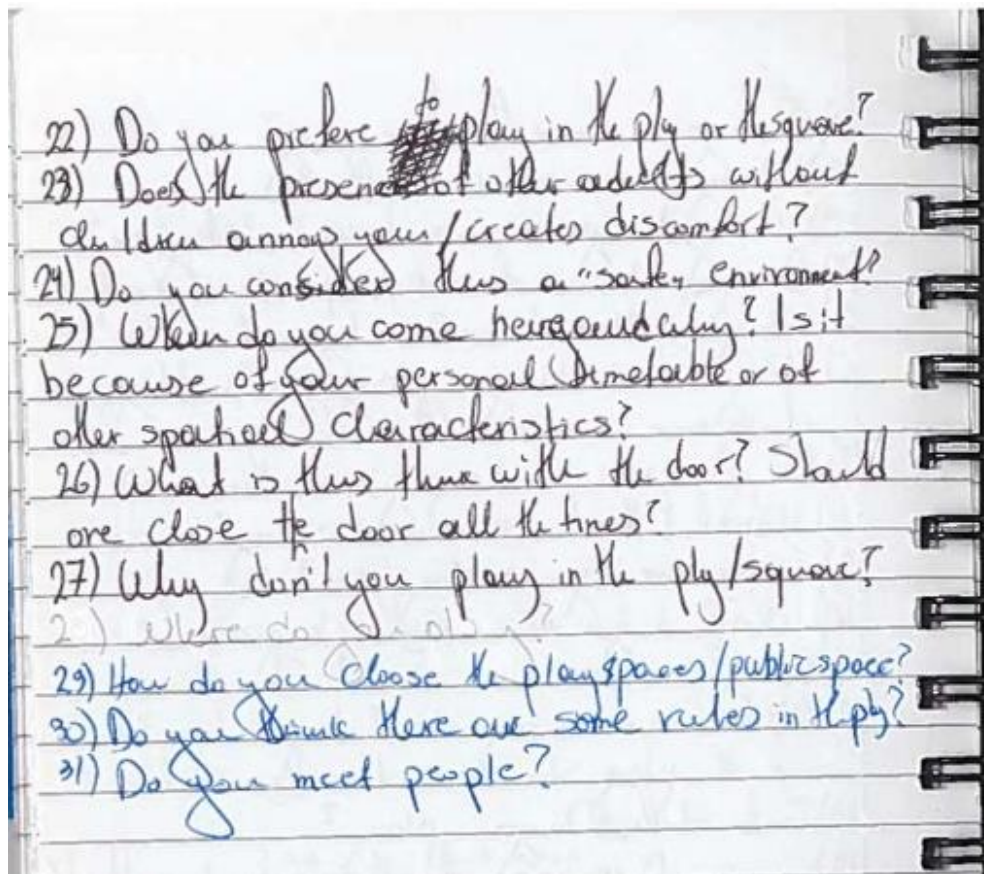 22) Do you prefere to play in the ply or the square?
23) Does the presence of other adults without
children annoy you / creates discomfort?
24) Do you consider this a "safe" environment?
25) When do you come here and why? Is it
because of your personal timetable or of
other spatial characteristics?
26) What is this think with the door? Should
one close the door all the times?
27) Why don't you play in the ply/square?
2 ) Where do play?
29) How do you choose the play spaces/public space?
30) Do you think there are some rules in the ply?
31) Do you meet people?